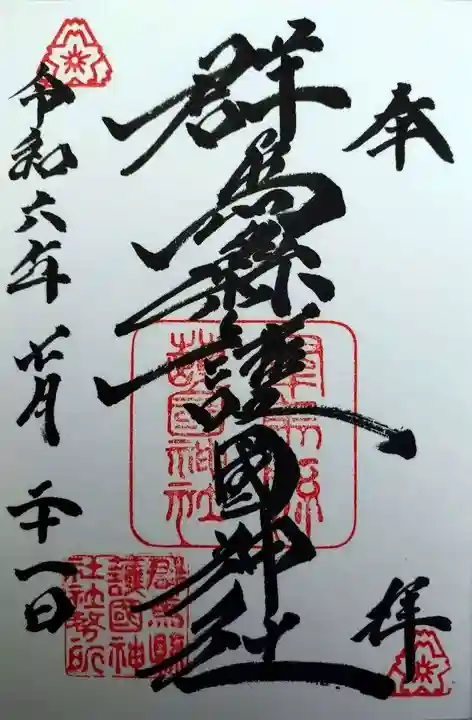 奉拝
群馬縣護國神社
令和六年 月 二十一日
群馬縣
護國神社
群馬縣
護國神
社社務所